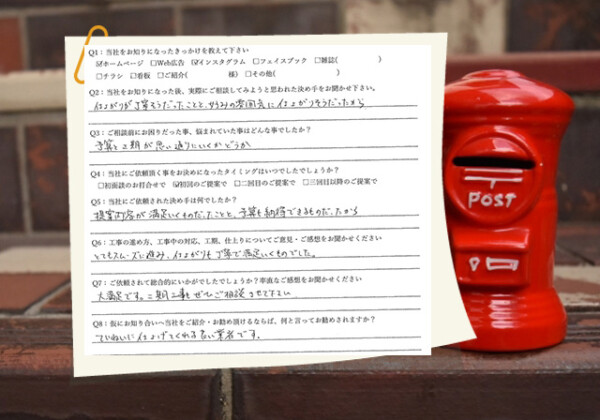 Q1：当社をお知りになったきっかけを教えて下さい
☑ホームページ　□Web広告　☑インスタグラム　□フェイスブック　□雑誌(　　　　　)
□チラシ　□看板　□ご紹介(　　　　　様)　□その他(　　　　　　　　)
Q2：当社をお知りになった後、実際にご相談してみようと思われた決め手をお聞かせ下さい。
仕上がりが丁寧そうだったことと、好みの雰囲気に仕上がりそうだったから
Q3：ご相談前にお困りだった事、悩まれていた事はどんな事でしたか？
予算と工期が思い通りにいくかどうか
Q4：当社にご依頼頂く事をお決めになったタイミングはいつでしたでしょうか？
□初面談のお打合せで　☑初回のご提案で　□二回目のご提案で　□三回目以降のご提案で
Q5：当社に依頼された決め手は何でしたか？
提案内容が満足いくものだったことと、予算も納得できるものだったから
Q6：工事の進め方、工事中の対応、工期、仕上りについてご意見・ご感想をお聞かせください
とてもスムーズに進み、仕上がりも丁寧で満足いくものでした。
Q7：ご依頼されて総合的にいかがでしたでしょうか？率直なご感想をお聞かせください
大満足です。二期工事もぜひご相談させて下さい
Q8：仮にお知り合いへ当社をご紹介・お勧め頂けるならば、何と言ってお勧めされますか？
ていねいに仕上げてくれる良い業者です。
POST